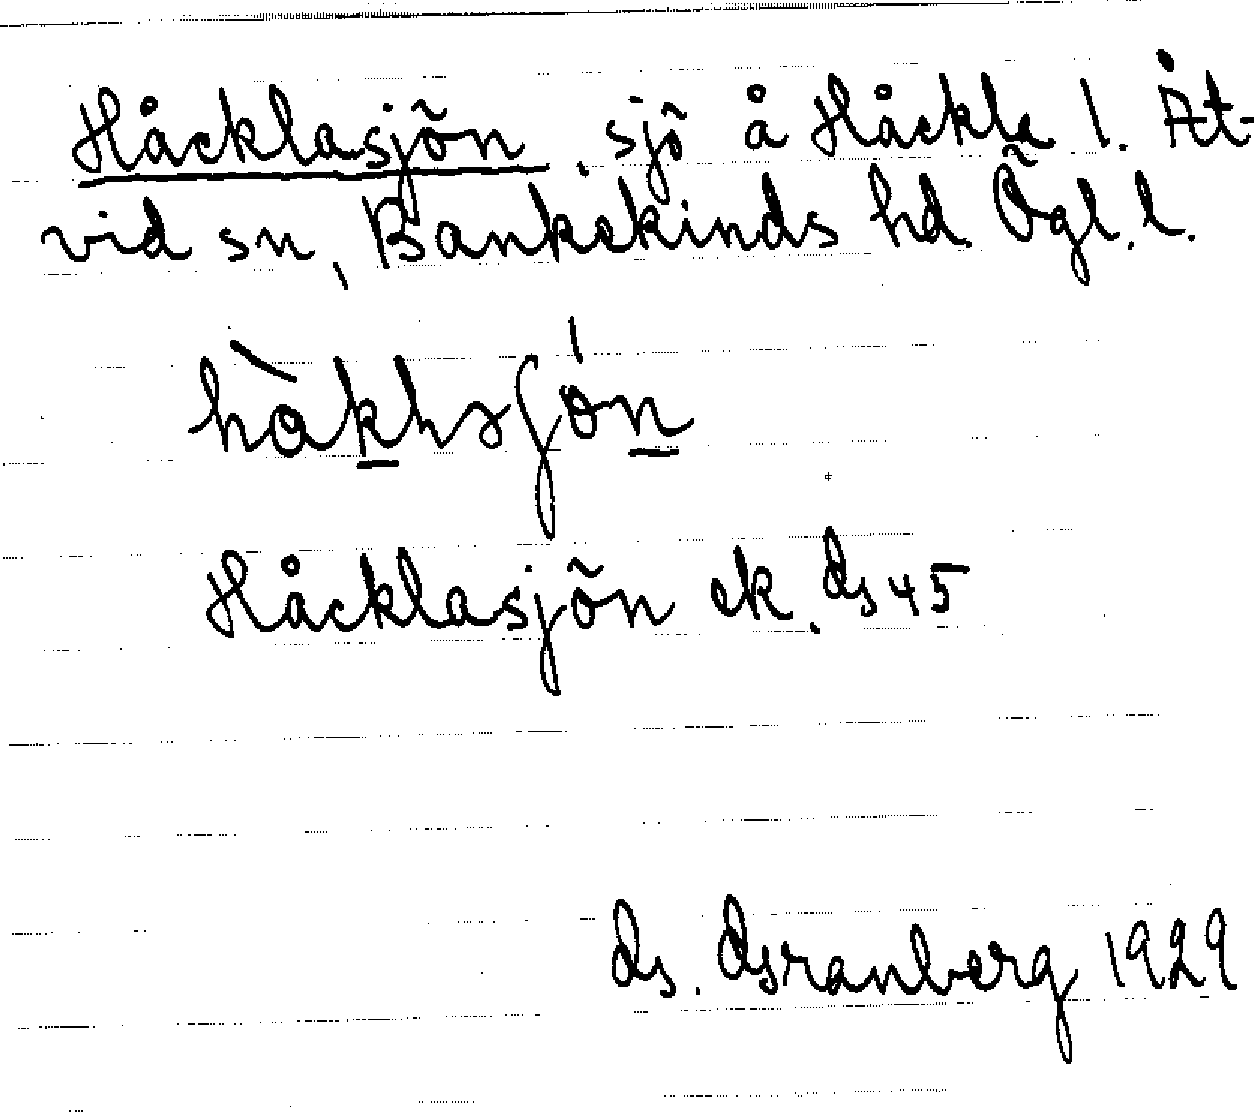 Håcklasjön, sjö å Håckla 1. Åt-
vid sn, Bankekinds hd Ögl. l.
Håcklasjön ek. Gs 45
G. Granberg 1929